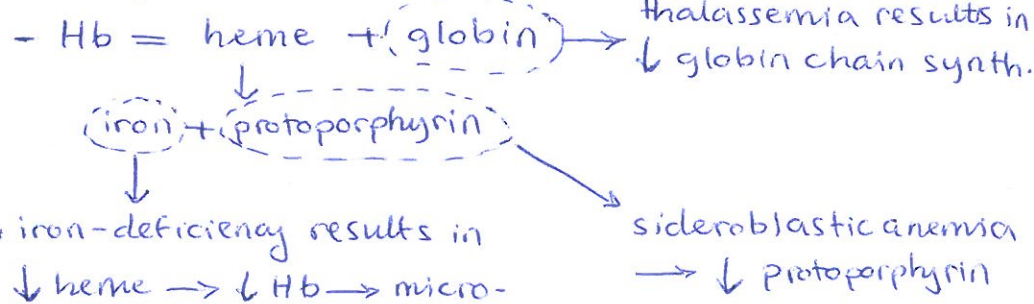 thalassemia results in
- Hb = heme + globin → ↓ globin chain synth.
↓
iron + protoporphyrin
iron-deficiency results in
↓ heme → ↓ Hb → micro-
sideroblastic anemia
→ ↓ protoporphyrin